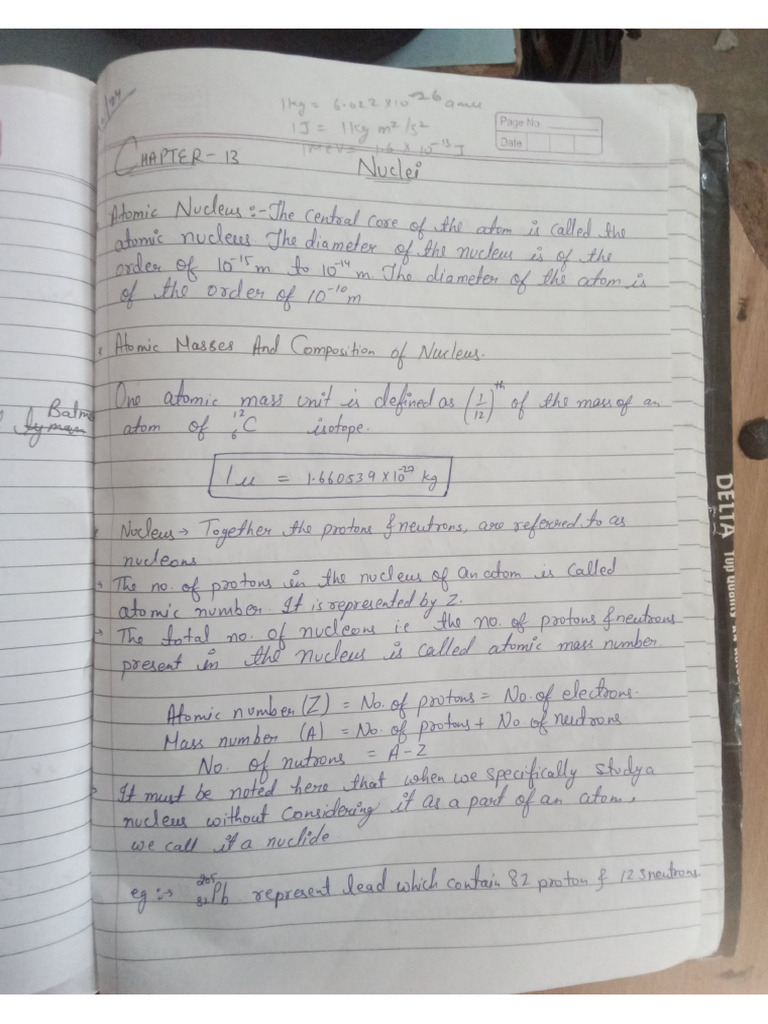 1kg = 6.022 x 10^26 amu
1J = 1kg m²/s²
1MeV = 1.6 x 10^-13 J
Page No.
Date
CHAPTER - 13
Nuclei
Atomic Nucleus :- The central core of the atom is called the
atomic nucleus The diameter of the nucleus is of the
order of 10^-15 m to 10^-14 m. The diameter of the atom is
of the order of 10^-10 m
Atomic Masses And Composition of Nucleus.
One atomic mass unit is defined as (1/12)^th of the mass of an
atom of ¹²₆C isotope.
1u = 1.660539 x 10^-27 kg
Nucleus → Together the protons & neutrons, are referred to as
nucleons
→ The no. of protons in the nucleus of an atom is called
atomic number. It is represented by Z.
→ The total no. of nucleons ie the no. of protons & neutrons
present in the nucleus is called atomic mass number.
Atomic number (Z) = No. of protons = No. of electrons.
Mass number (A) = No. of protons + No of neutrons
No. of nutrons = A - Z
It must be noted here that when we specifically study a
nucleus without considering it as a part of an atom,
we call it a nuclide
eg :→ ²⁰⁵₈₂Pb represent lead which contain 82 proton & 123 neutrons.
DELTA Top Quality